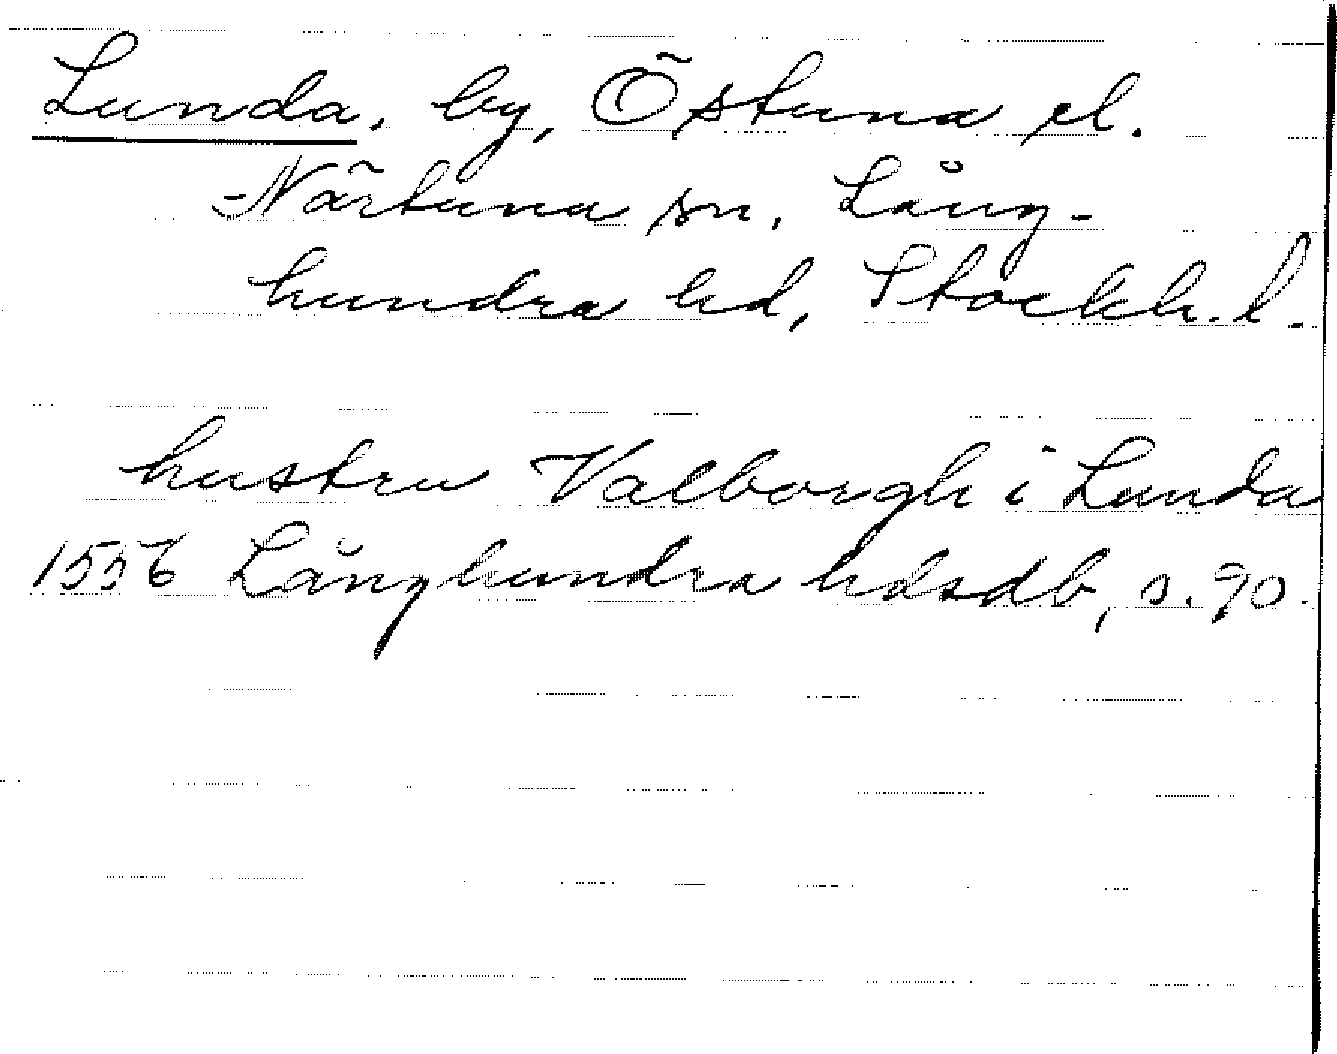 Lunda, by, Östuna el.
Närtuna sn, Lång-
hundra hd, Stockh. l.
hustru Valborgh i Lunda
1556 Långhundra hdsdb, s. 90.